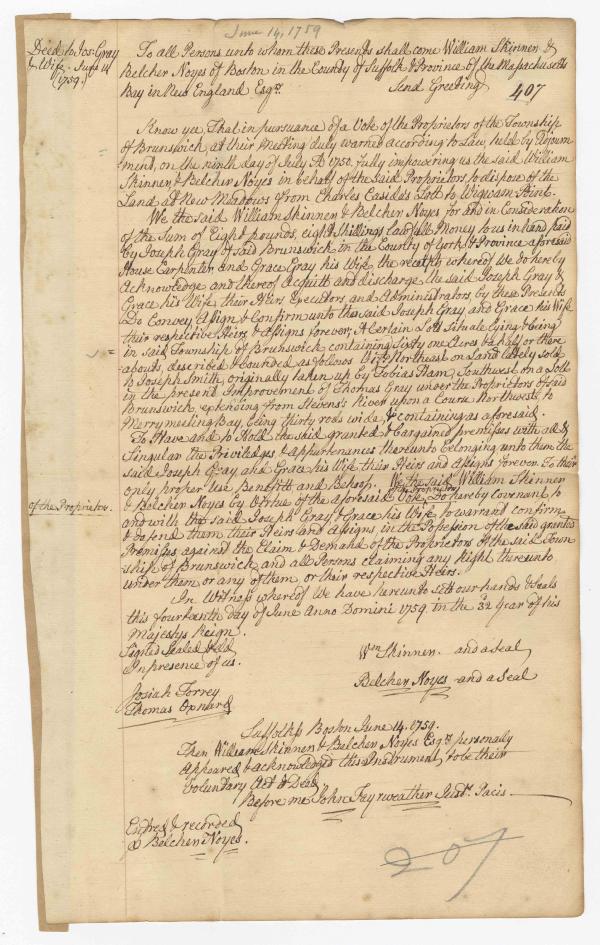 June 14, 1759
Deed to Jos: Gray
& Wife. June 14
1759.
To all Persons unto whom these Presents shall come William Skinner &
Belcher Noyes of Boston in the County of Suffolk & Province of the Massachusetts
Bay in New England Esqrs. Send Greeting
407
Know ye, That in pursuance of a Vote of the Proprietors of the Township
of Brunswick, at their Meeting duly warned according to Law, held by Adjourn
ment, on the ninth day of July A D 1750. fully empowering us the said William
Skinner & Belcher Noyes in behalf of the said Proprietors to dispose of the
Land at New Meadows from Charles Casida's Lott to Wigwam Point.
We the said William Skinner & Belcher Noyes for and in Consideration
of the Sum of Eight pounds, eight Shillings lawfull Money to us in hand paid
by Joseph Gray of said Brunswick in the County of York & Province aforesaid
House Carpenter and Grace Gray his Wife the receipt whereof We do hereby
Acknowledge and thereof Acquitt and discharge the said Joseph Gray &
Grace his Wife their Heirs Executors and Administrators, by these Presents
Do Convey, Assign & Confirm unto the said Joseph Gray and Grace his Wife
their respective Heirs & Assigns forever, A Certain Lott Situate lying & being
in said Township of Brunswick containing Sixty one Acres & half or there
abouts, described & bounded as follows Vizt. Northeast on Land lately sold
to Joseph Smith, originally taken up by Tobias Ham, Southwest on a Lott
in the present Improvement of Thomas Gray under the Proprietors of said
Brunswick, extending from Stevens's River upon a Course Northwest to
Merrymeeting Bay, being thirty rods wide, & containing as aforesaid.
To Have and to Hold the said granted & bargained premisses with all &
Singular the Priviledges & appurtenances thereunto belonging unto them the
said Joseph Gray and Grace his Wife their Heirs and Assigns forever To their
only proper Use Benefitt and Behoof. We the said William Skinner
& Belcher Noyes by Virtue of the aforesaid Vote, Do hereby Covenant to
of the Proprietors.
and with the said Joseph Gray & Grace his Wife, to warrant confirm
& defend them their Heirs and Assigns in the Possession of the said granted
Premisses against the Claim & Demand of the Proprietors of the said Town
ship of Brunswick, and all Persons claiming any Right thereunto
under them or any of them, or their respective Heirs.
In Witness whereof We have hereunto sett our hands & Seals
this fourteenth day of June Anno Domini 1759. In the 32 Year of his
Majestys Reign.
Signed Sealed & dd
In presence of us.
Wm Skinner and a Seal
Belcher Noyes and a Seal
Josiah Torrey
Thomas Oxnard
Suffolk ss Boston June 14. 1759.
Then William Skinner & Belcher Noyes Esqrs. personally
Appeared & acknowledged this Instrument, to be their
Voluntary Act & Deed
Before me John Fayrweather Just. Pacis
Entred & recorded
p Belcher Noyes.
207